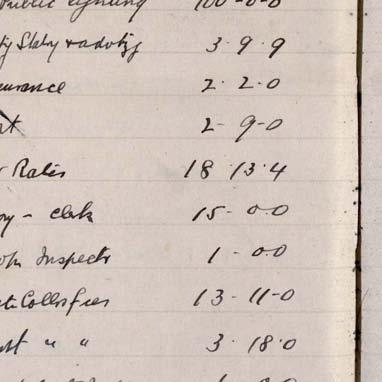 Public Lighting 100-0-0
Staty & advertg 3.9.9
urance 2.2.0
2-9-0
Rates 18.13.4
- Clerk 15-0.0
Inspector 1-0.0
Colltrs fees 13-11-0
" " 3.18.0